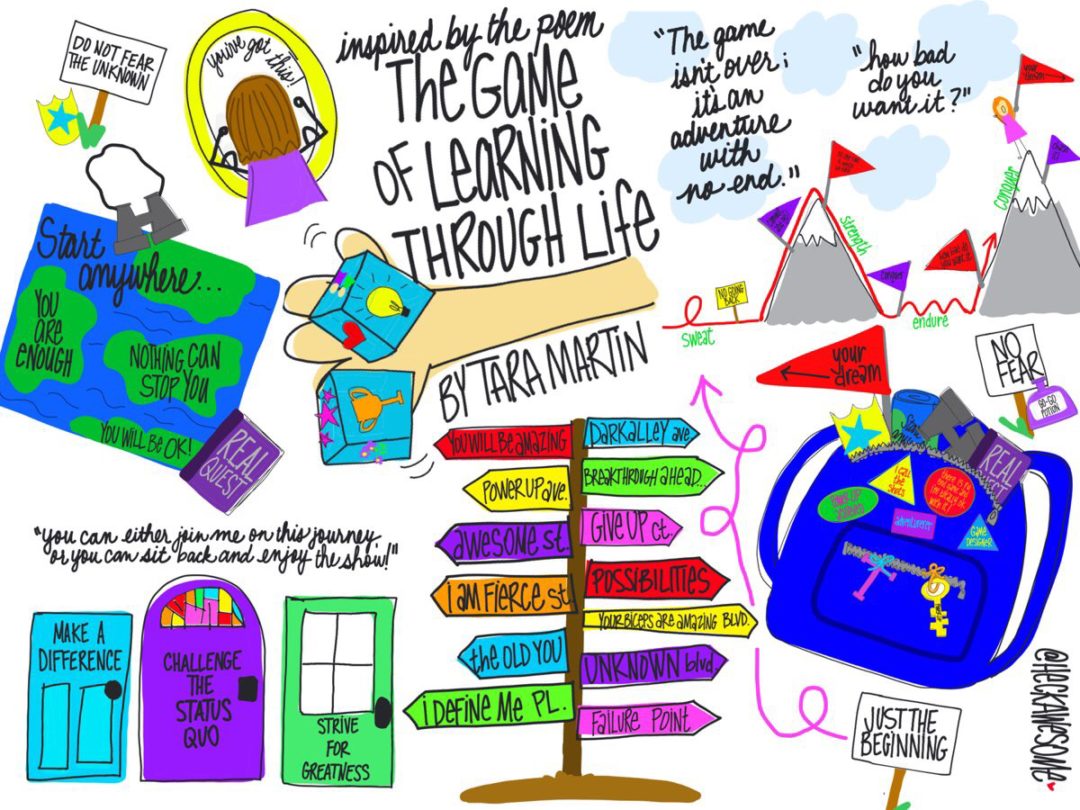 DO NOT FEAR
THE UNKNOWN
you've got this!
inspired by the poem
THE GAME
OF LEARNING
THROUGH LIFE
BY TARA MARTIN
"The game
isn't over;
it's an
adventure
with
no end."
"how bad
do you
want it?"
your
dream
conquer
strength
NO GOING
BACK
sweat
conquer
endure
Start
anywhere...
YOU
ARE
ENOUGH
NOTHING CAN
STOP YOU
YOU WILL BE OK!
REAL
QUEST
"you can either join me on this journey
or you can sit back and enjoy the show!"
MAKE A
DIFFERENCE
CHALLENGE
THE
STATUS
QUO
STRIVE
FOR
GREATNESS
YOU WILL BE AMAZING
POWER UP AVE.
AWESOME ST
I AM FIERCE ST
the OLD YOU
I DEFINE ME PL.
DARK ALLEY AVE
BREAKTHROUGH AHEAD...
GIVE UP CT.
POSSIBILITIES
YOUR BICEPS ARE AMAZING BLVD.
UNKNOWN blvd.
FAILURE POINT
your
dream
NO
FEAR
GO-GO
POTION
Start
REAL
QUEST
I call
the
shots
adventurer
GAME
DESIGNER
JUST THE
BEGINNING
@HECKAWESOME